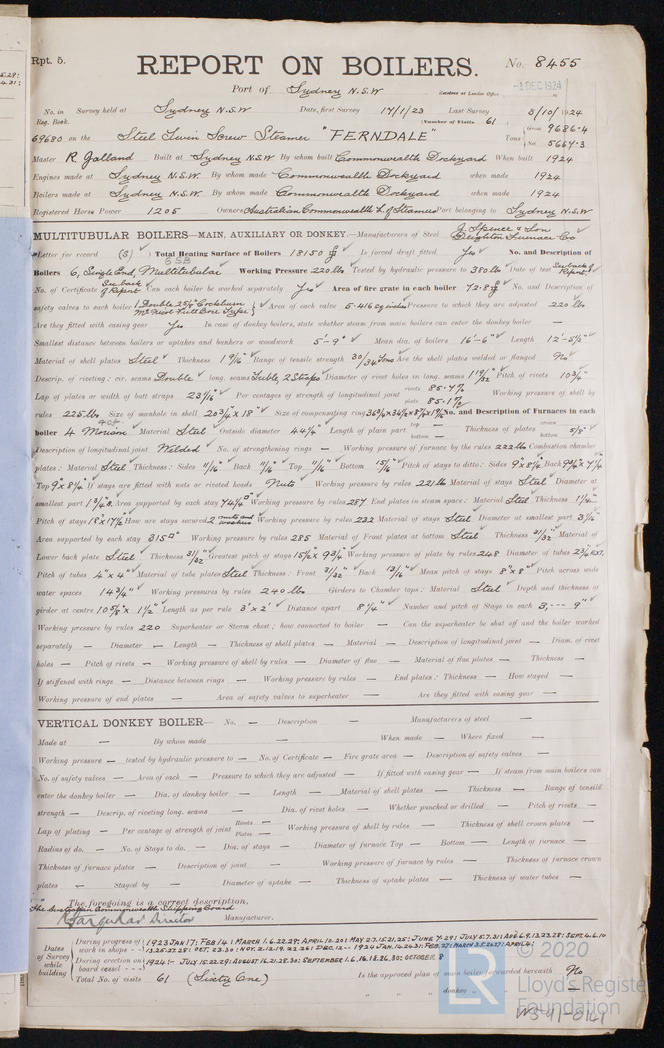 Rpt. 5.
REPORT ON BOILERS.
No. 8455
Port of Sydney N.S.W
Received at London Office
-1 DEC 1924
No. in Survey held at Sydney N.S.W Date, first Survey 17/1/23 Last Survey 8/10/1924
Reg. Book. (Number of Visits 61)
69680 on the Steel Twin Screw Steamer "FERNDALE" Tons Gross 9686.4
Net 5667.3
Master R. Jolland Built at Sydney N.S.W By whom built Commonwealth Dockyard When built 1924
Engines made at Sydney N.S.W. By whom made Commonwealth Dockyard when made 1924
Boilers made at Sydney N.S.W. By whom made Commonwealth Dockyard when made 1924
Registered Horse Power 1205 Owners Australian Commonwealth L. of Steamers Port belonging to Sydney N.S.W
MULTITUBULAR BOILERS—MAIN, AUXILIARY OR DONKEY.—Manufacturers of Steel J. Spence & Son
Deighton Furnace Co
Letter for record (S) Total Heating Surface of Boilers 18150 Is forced draft fitted Yes No. and Description of
6 SB
Boilers 6, Single End, Multitubular Working Pressure 220 lbs Tested by hydraulic pressure to 380 lbs Date of test See back of Report
No. of Certificate See back of Report Can each boiler be worked separately Yes Area of fire grate in each boiler 72.8 No. and Description of
safety valves to each boiler 1 Double 2⅝" Cockburn
Full Bore Type Area of each valve 5.416 sq inches Pressure to which they are adjusted 220 lbs
Are they fitted with easing gear Yes In case of donkey boilers, state whether steam from main boilers can enter the donkey boiler —
Smallest distance between boilers or uptakes and bunkers or woodwork 5'-9" Mean dia. of boilers 16'-6" Length 12'-5½"
Material of shell plates Steel Thickness 1 9/16" Range of tensile strength 30/34 Tons Are the shell plates welded or flanged No
Descrip. of riveting: cir. seams Double long. seams Treble, 2 Straps Diameter of rivet holes in long. seams 1 19/32" Pitch of rivets 10¾"
Lap of plates or width of butt straps 23 7/16" Per centages of strength of longitudinal joint rivets 85.4%
plate 85.1% Working pressure of shell by
rules 225 lbs Size of manhole in shell 20¾" x 18" Size of compensating ring No. and Description of Furnaces in each
boiler 4 Morison Material Steel Outside diameter 44¼" Length of plain part top —
bottom — Thickness of plates crown
bottom 5/8"
Description of longitudinal joint Welded No. of strengthening rings — Working pressure of furnace by the rules 222 lbs Combustion chamber
plates: Material Steel Thickness: Sides 11/16" Back 11/16" Top 11/16" Bottom 15/16" Pitch of stays to ditto: Sides 9" x 8½" Back
Top 9" x 8¼" If stays are fitted with nuts or riveted heads Nuts Working pressure by rules 221 lb Material of stays Steel Diameter at
smallest part Area supported by each stay 74¼" Working pressure by rules 287 End plates in steam space: Material Steel Thickness 1¼"
Pitch of stays 18 x 17½ How are stays secured 2 nuts and washers Working pressure by rules 232 Material of stays Steel Diameter at smallest part
Area supported by each stay 315" Working pressure by rules 285 Material of Front plates at bottom Steel Thickness 31/32" Material of
Lower back plate Steel Thickness 31/32" Greatest pitch of stays 15½ x 9¾ Working pressure of plate by rules 248 Diameter of tubes 2¾" ext.
Pitch of tubes 4" x 4" Material of tube plates Steel Thickness: Front 31/32" Back 13/16" Mean pitch of stays 8" x 8" Pitch across wide
water spaces 14¾" Working pressures by rules 240 lbs Girders to Chamber tops: Material Steel Depth and thickness of
girder at centre 10⅝" x 1½" Length as per rule 3' x 2" Distance apart 8¼" Number and pitch of Stays in each 3; --- 9"
Working pressure by rules 220 Superheater or Steam chest; how connected to boiler — Can the superheater be shut off and the boiler worked
separately — Diameter — Length — Thickness of shell plates — Material — Description of longitudinal joint — Diam. of rivet
holes — Pitch of rivets — Working pressure of shell by rules — Diameter of flue — Material of flue plates — Thickness —
If stiffened with rings — Distance between rings — Working pressure by rules — End plates: Thickness — How stayed —
Working pressure of end plates — Area of safety valves to superheater — Are they fitted with easing gear —
VERTICAL DONKEY BOILER— No. — Description — Manufacturers of steel —
Made at — By whom made — When made — Where fixed —
Working pressure — tested by hydraulic pressure to — No. of Certificate — Fire grate area — Description of safety valves —
No. of safety valves — Area of each — Pressure to which they are adjusted — If fitted with easing gear — If steam from main boilers can
enter the donkey boiler — Dia. of donkey boiler — Length — Material of shell plates — Thickness — Range of tensile
strength — Descrip. of riveting long. seams — Dia. of rivet holes — Whether punched or drilled — Pitch of rivets —
Lap of plating — Per centage of strength of joint Rivets —
Plates — Working pressure of shell by rules — Thickness of shell crown plates —
Radius of do. — No. of Stays to do. — Dia. of stays — Diameter of furnace Top — Bottom — Length of furnace —
Thickness of furnace plates — Description of joint — Working pressure of furnace by rules — Thickness of furnace crown
plates — Stayed by — Diameter of uptake — Thickness of uptake plates — Thickness of water tubes —
The foregoing is a correct description,
The Australian Commonwealth Shipping Board
Farquhar Director Manufacturer.
Dates of Survey while building
During progress of work in shops - - 1923 JAN 17; FEB 14; MARCH 1.6.22.29; APRIL 12.20; MAY 2.7.15.21.25; JUNE 7.29; JULY 5.7.31; AUG 6.9.13.23.28; SEPT 4.6.10
13.25.27.28; OCT. 23.30; NOV. 2.12.19.22.26; DEC. 12 -- 1924 JAN. 14.24.31; FEB. 27; MARCH 3.25.27; APRIL 4;
During erection on board vessel - - - 1924:- JULY 15.22.29; AUGUST 16.21.28.30; SEPTEMBER 1.6.16.18.26.30; OCTOBER 8
Total No. of visits 61 (Sixty One) Is the approved plan of main boiler forwarded herewith No
" " " donkey " " —
© 2020
LR
Lloyd's Register
Foundation
W541-0141